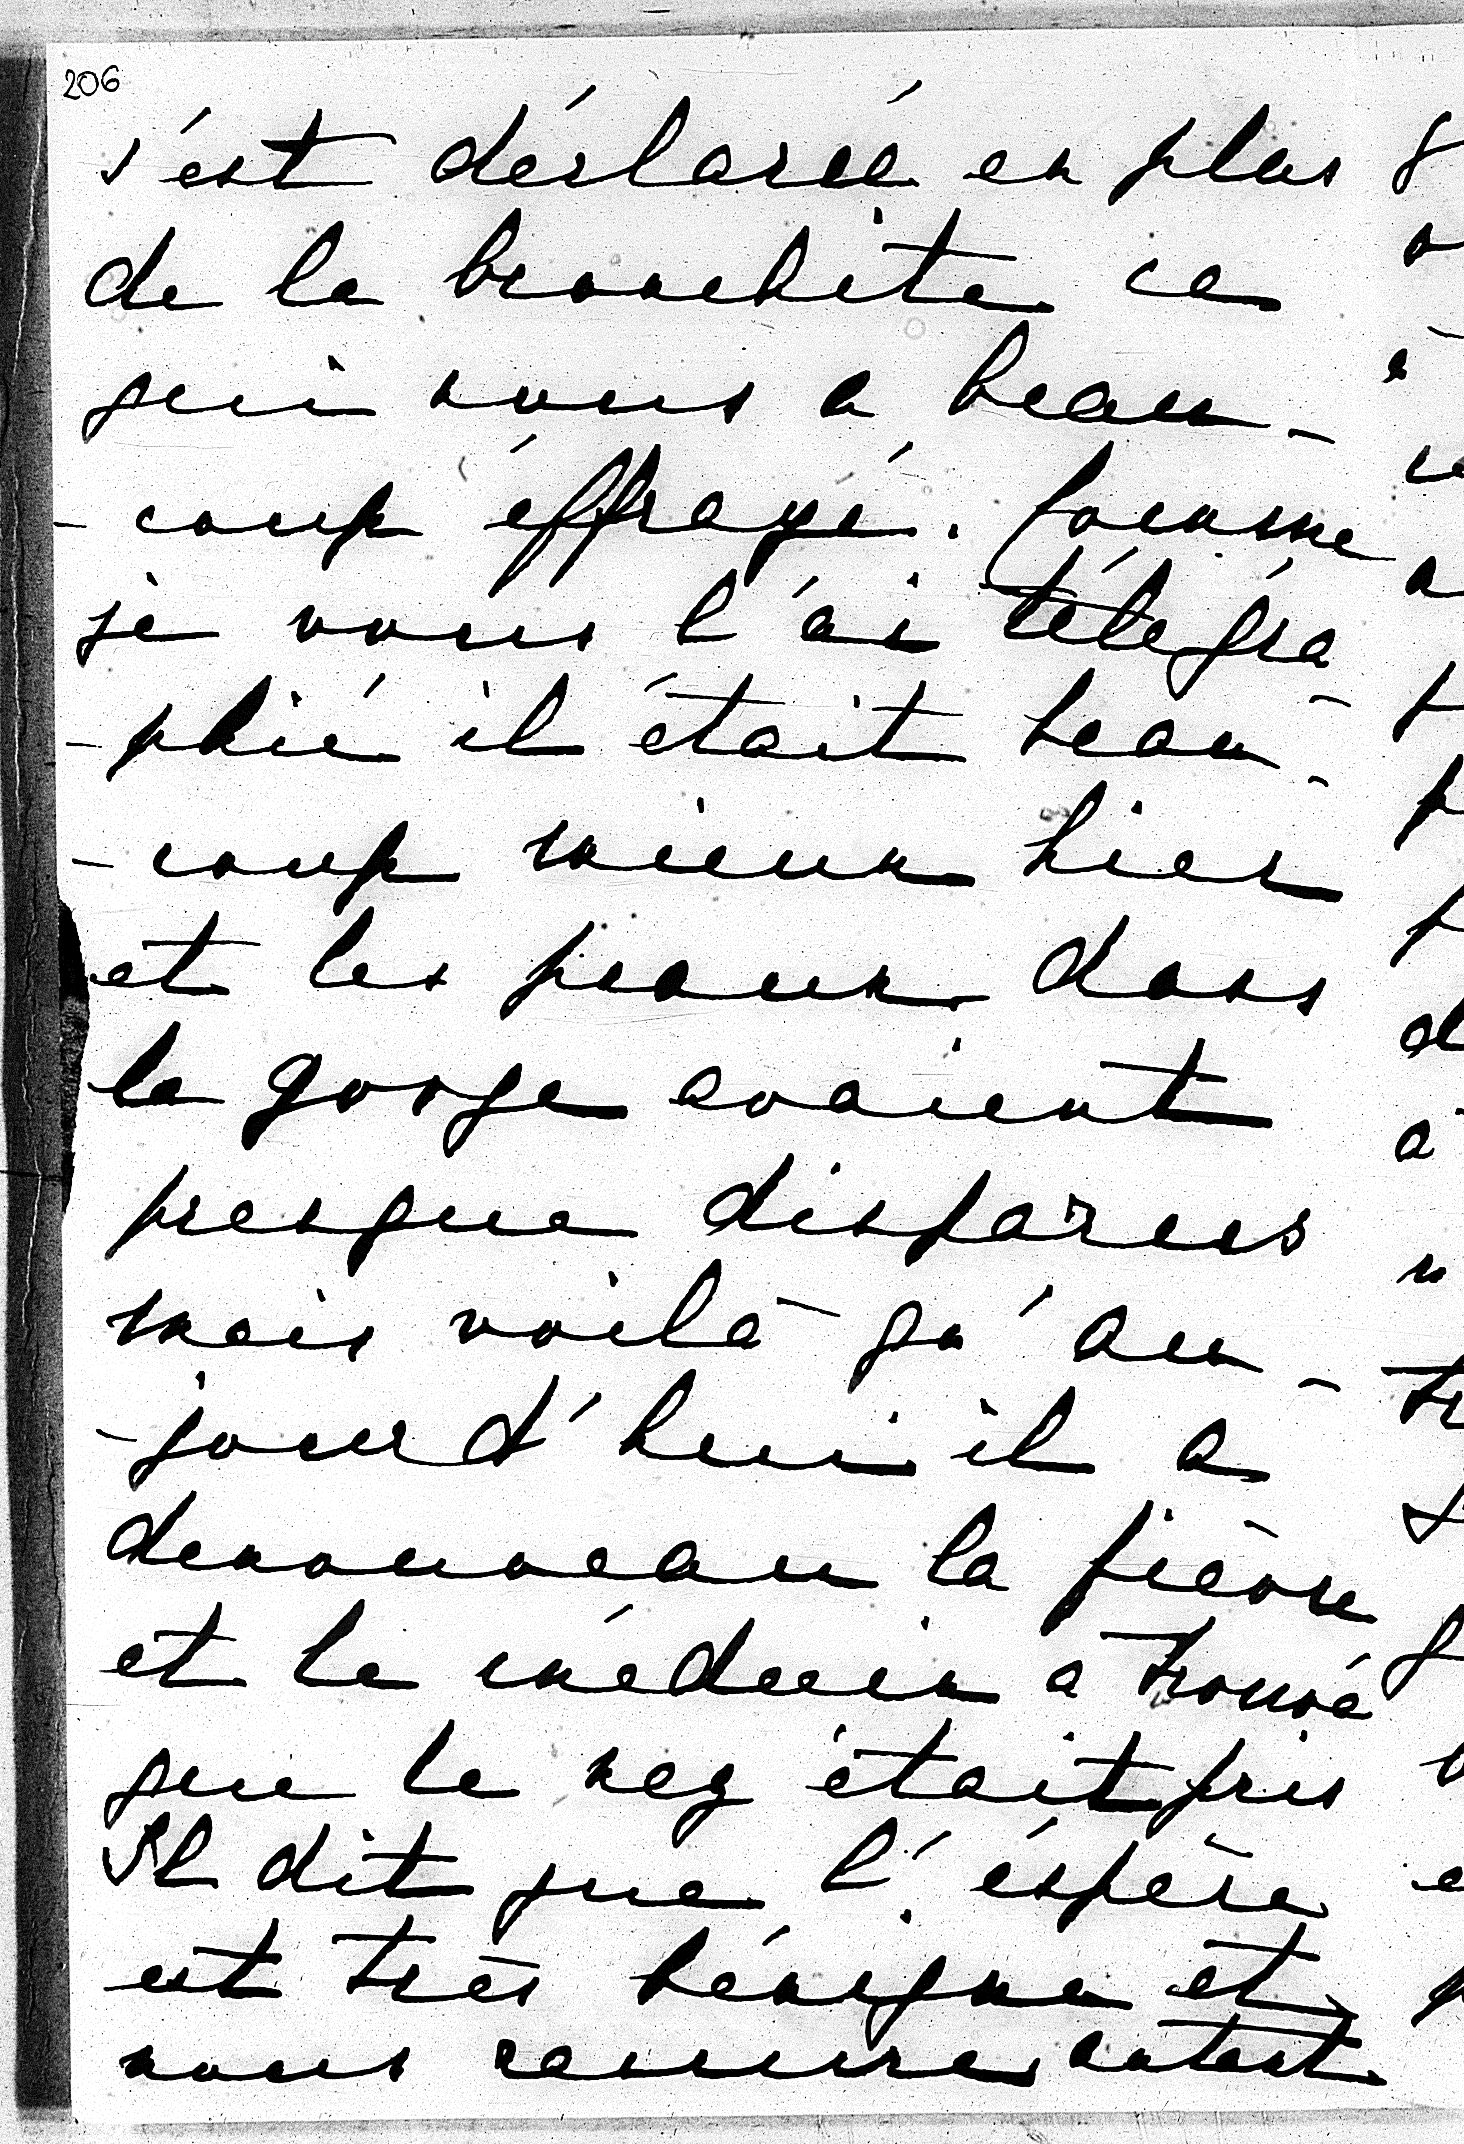 206
s'est déclarée en plus
de la bronchite ce
qui nous a beau-
-coup éffrayé. Comme
je vous l'ai télégra
-phié il était beau-
-coup mieux hier
et les peaux dans
la gorge avaient
presque disparus
mais voilà qu'au-
-jourd'hui il a
denouveau la fièvre
et le médecin a trouvé
que le nez était pris
Il dit que l'éspèce
est très bénigne et
nous rassure autant